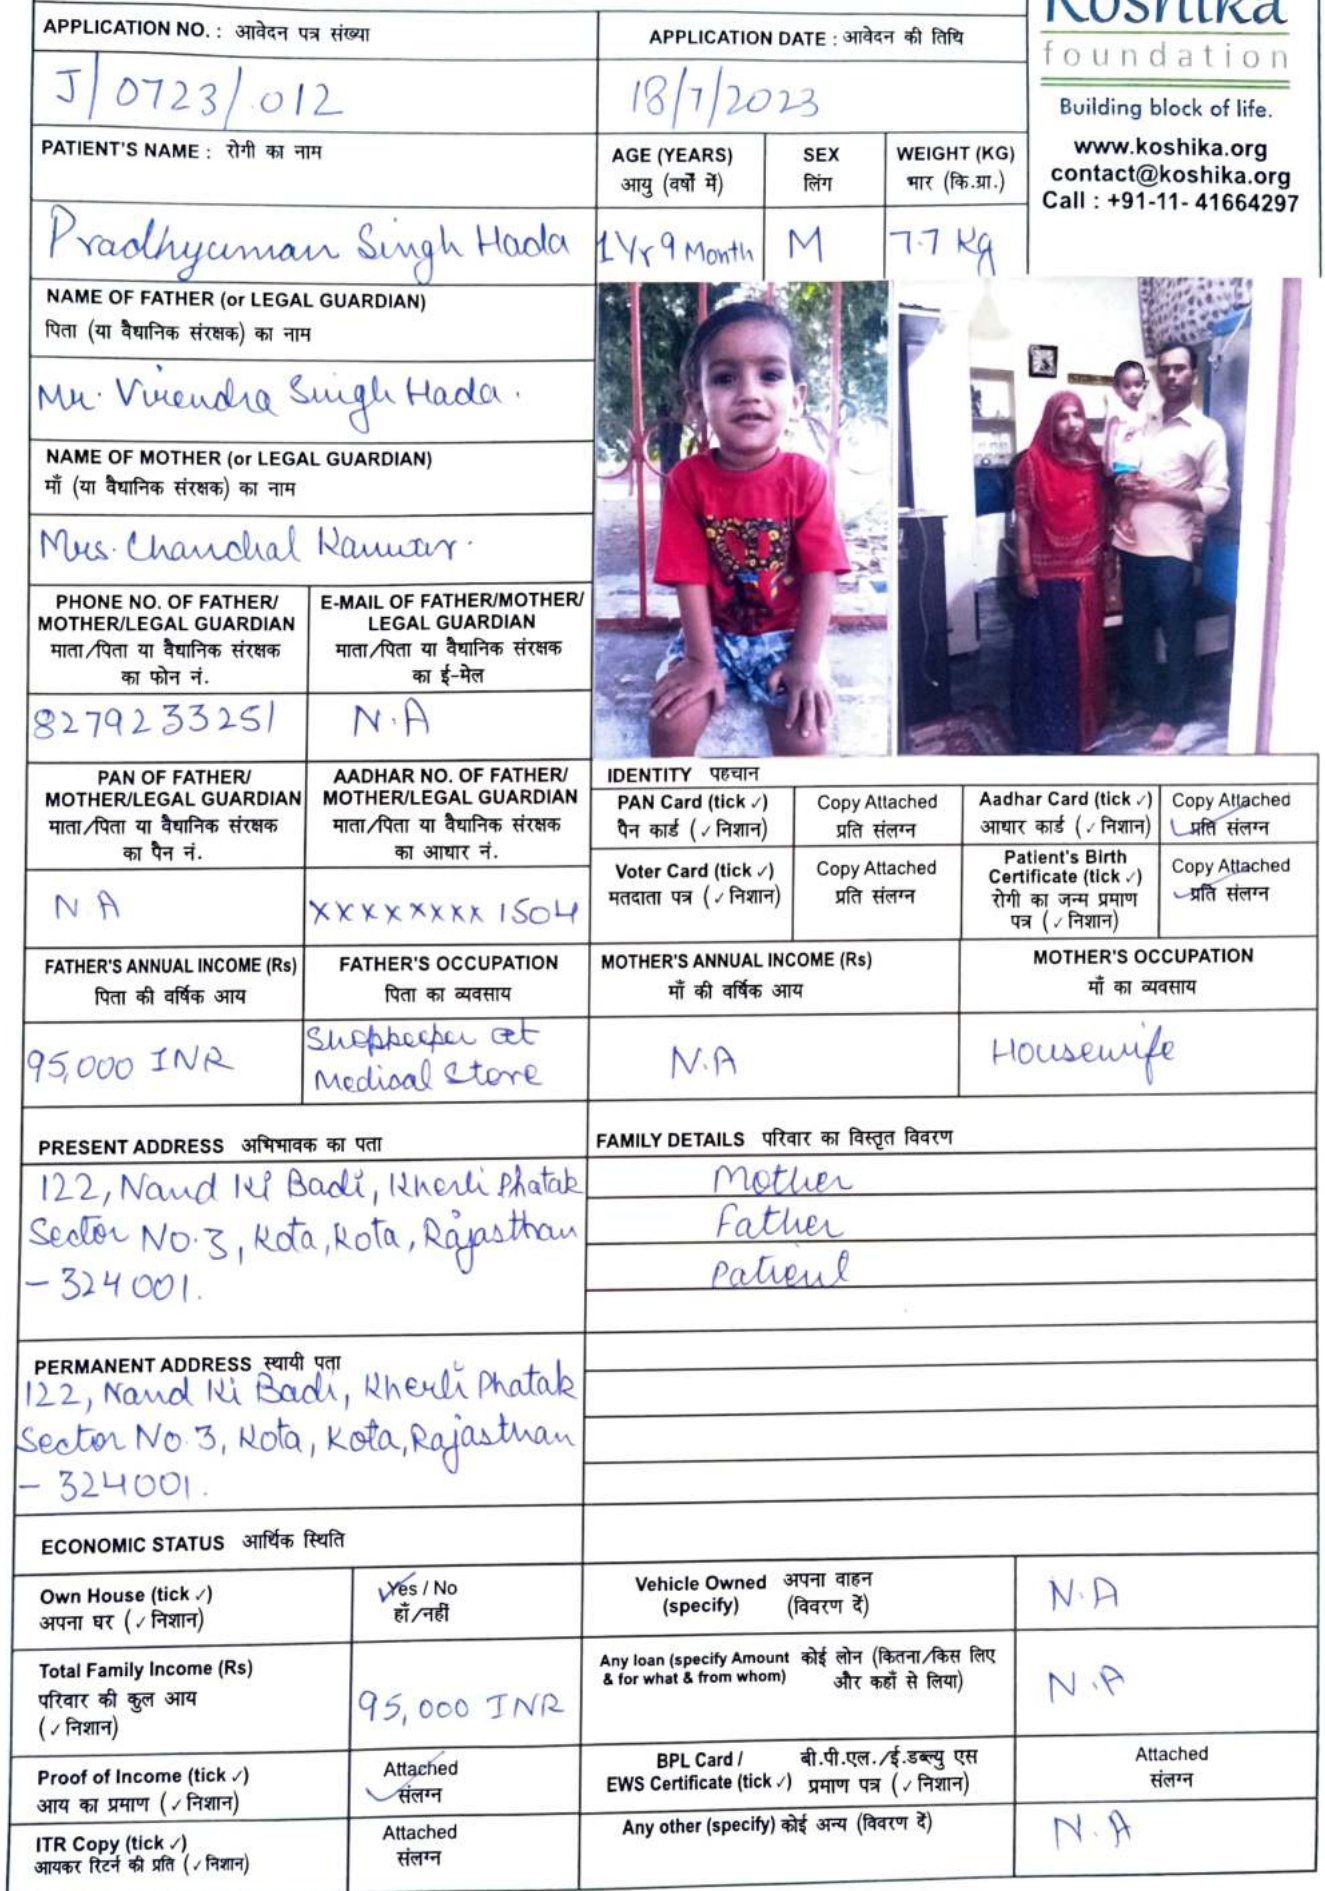 Koshika
foundation
Building block of life.
www.koshika.org
contact@koshika.org
Call : +91-11- 41664297
APPLICATION NO. : आवेदन पत्र संख्या
APPLICATION DATE : आवेदन की तिथि
J/0723/.012
18/7/2023
PATIENT'S NAME : रोगी का नाम
AGE (YEARS)
आयु (वर्षों में)
SEX
लिंग
WEIGHT (KG)
भार (कि.ग्रा.)
Pradhyuman Singh Hada
1 Yr 9 Month
M
7.7 Kg
NAME OF FATHER (or LEGAL GUARDIAN)
पिता (या वैधानिक संरक्षक) का नाम
Mr. Virendra Singh Hada.
NAME OF MOTHER (or LEGAL GUARDIAN)
माँ (या वैधानिक संरक्षक) का नाम
Mrs. Chanchal Kanwar.
PHONE NO. OF FATHER/
MOTHER/LEGAL GUARDIAN
माता/पिता या वैधानिक संरक्षक
का फोन नं.
E-MAIL OF FATHER/MOTHER/
LEGAL GUARDIAN
माता/पिता या वैधानिक संरक्षक
का ई-मेल
8279233251
N.A
PAN OF FATHER/
MOTHER/LEGAL GUARDIAN
माता/पिता या वैधानिक संरक्षक
का पैन नं.
AADHAR NO. OF FATHER/
MOTHER/LEGAL GUARDIAN
माता/पिता या वैधानिक संरक्षक
का आधार नं.
N A
XXXXXXXX 1504
IDENTITY पहचान
PAN Card (tick ✓)
पैन कार्ड (✓ निशान)
Copy Attached
प्रति संलग्न
Aadhar Card (tick ✓)
आधार कार्ड (✓ निशान)
Copy Attached
✓ प्रति संलग्न
Voter Card (tick ✓)
मतदाता पत्र (✓ निशान)
Copy Attached
प्रति संलग्न
Patient's Birth
Certificate (tick ✓)
रोगी का जन्म प्रमाण
पत्र (✓ निशान)
Copy Attached
✓ प्रति संलग्न
FATHER'S ANNUAL INCOME (Rs)
पिता की वर्षिक आय
FATHER'S OCCUPATION
पिता का व्यवसाय
MOTHER'S ANNUAL INCOME (Rs)
माँ की वर्षिक आय
MOTHER'S OCCUPATION
माँ का व्यवसाय
95,000 INR
Shopkeeper at
Medical Store
N.A
Housewife
PRESENT ADDRESS अभिभावक का पता
122, Nand Ki Badi, Kherli Phatak
Sector No.3, Kota, Kota, Rajasthan
- 324001.
FAMILY DETAILS परिवार का विस्तृत विवरण
Mother
Father
Patient
PERMANENT ADDRESS स्थायी पता
122, Nand Ki Badi, Kherli Phatak
Sector No.3, Kota, Kota, Rajasthan
- 324001.
ECONOMIC STATUS आर्थिक स्थिति
Own House (tick ✓)
अपना घर (✓ निशान)
✓ Yes / No
हाँ/नहीं
Vehicle Owned अपना वाहन
(specify) (विवरण दें)
N.A
Total Family Income (Rs)
परिवार की कुल आय
(✓ निशान)
95,000 INR
Any loan (specify Amount कोई लोन (कितना/किस लिए
& for what & from whom) और कहाँ से लिया)
N.A
Proof of Income (tick ✓)
आय का प्रमाण (✓ निशान)
Attached
✓ संलग्न
BPL Card / बी.पी.एल./ई.डब्ल्यु एस
EWS Certificate (tick ✓) प्रमाण पत्र (✓ निशान)
Attached
संलग्न
ITR Copy (tick ✓)
आयकर रिटर्न की प्रति (✓ निशान)
Attached
संलग्न
Any other (specify) कोई अन्य (विवरण दें)
N.A